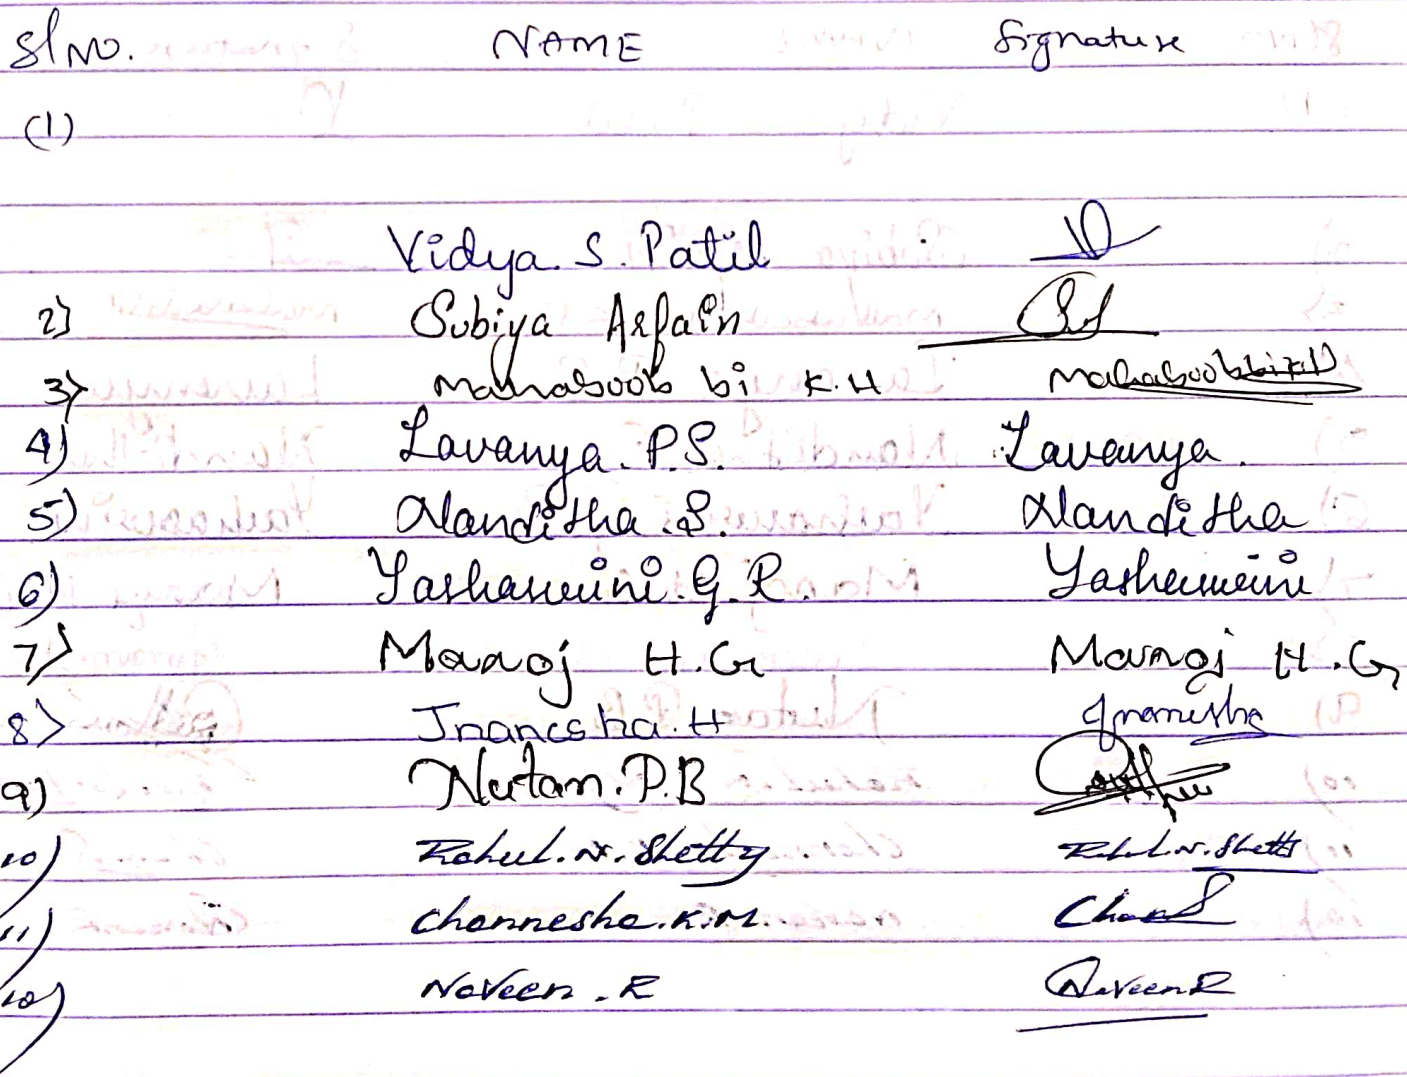 Sl No. NAME Signature
(1)
Vidya. S. Patil
2) Subiya Arfain
3) Mahaboob bi K.H Mahaboobbi K.H
4) Lavanya. P.S. Lavanya.
5) Nanditha .S. Nanditha
6) Yashaswini. G. R. Yashaswini
7) Manoj H.G Manoj H.G
8) Jnanesha. H Jnanesha
9) Nutan. P.B
10) Rahul. N. Shetty Rahul. N. Shetty
11) Channesha. K. M. Chan
Naveen . R Naveen R